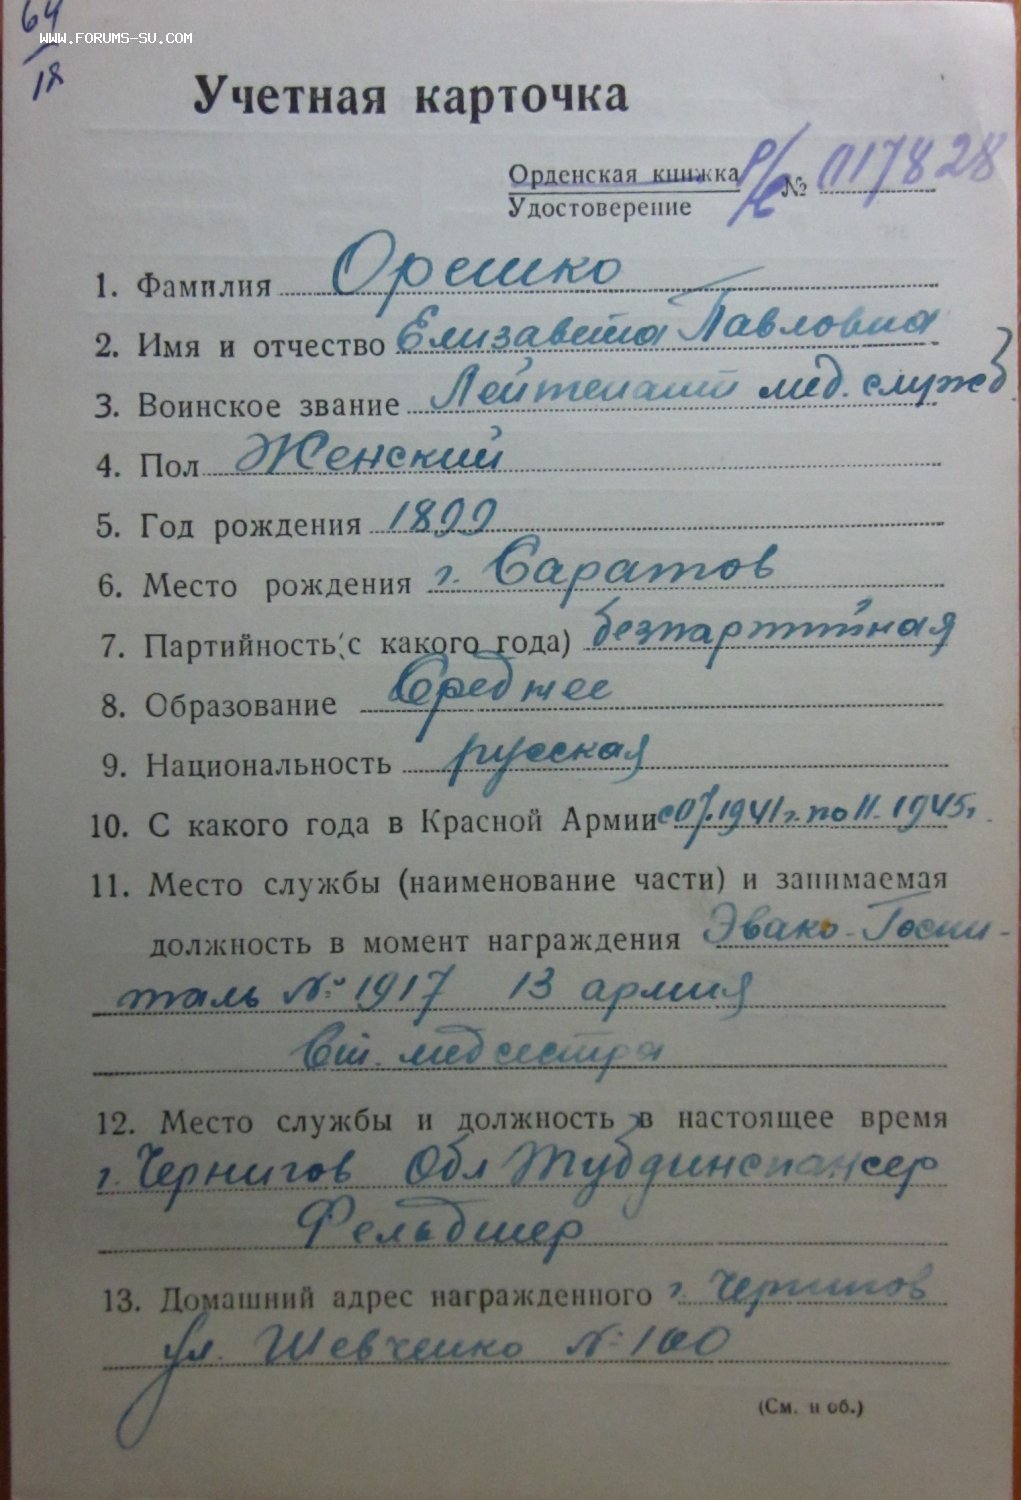 64
18
www.forums-su.com
Учетная карточка
Орденская книжка
Удостоверение
№ 017828
1. Фамилия Орешко
2. Имя и отчество Елизавета Павловна
3. Воинское звание Лейтенант мед. служб
4. Пол Женский
5. Год рождения 1899
6. Место рождения г. Саратов
7. Партийность (с какого года) безпартийная
8. Образование Среднее
9. Национальность русская
10. С какого года в Красной Армии с 07.1941 г. по 11.1945 г.
11. Место службы (наименование части) и занимаемая
должность в момент награждения Эвако-Госпи-
таль № 1917 13 армия
Ст. медсестра
12. Место службы и должность в настоящее время
г. Чернигов Обл Тубдинспансер
Фельдшер
13. Домашний адрес награжденного г. Чернигов
ул. Шевченко № 100
(См. н об.)